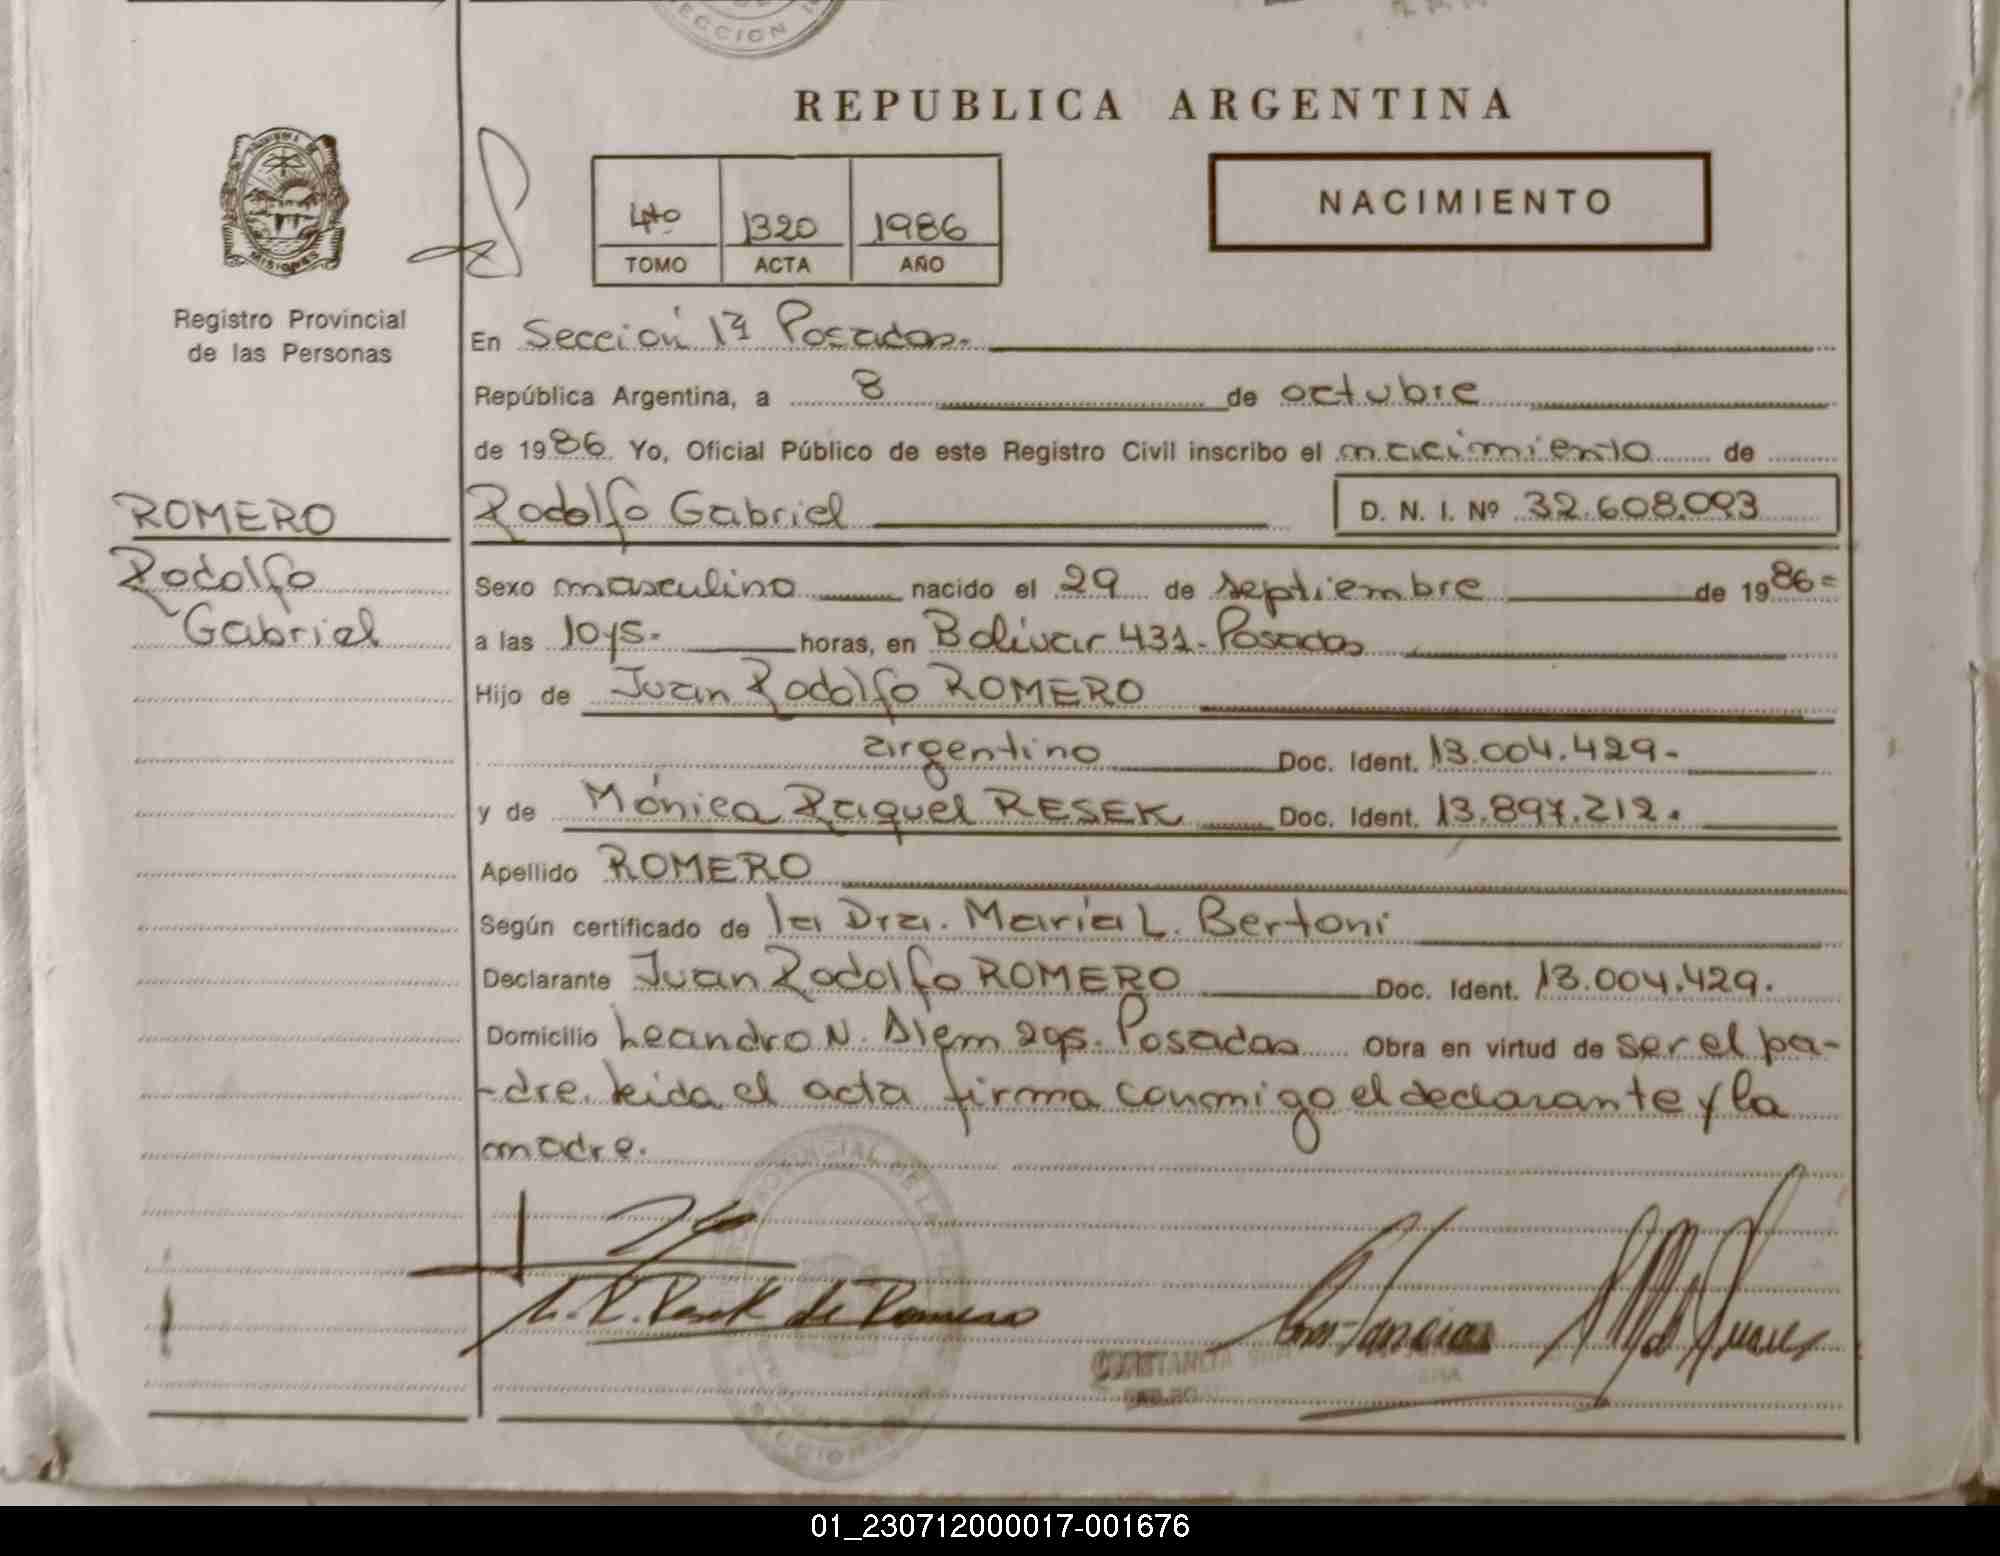 CCION
REPUBLICA ARGENTINA
4to 1320 1986
TOMO ACTA AÑO
NACIMIENTO
MISIONES
Registro Provincial
de las Personas
En Sección 1ª Posadas.
República Argentina, a 8 de octubre
de 1986. Yo, Oficial Público de este Registro Civil inscribo el nacimiento de
ROMERO
Rodolfo
Gabriel
Rodolfo Gabriel D. N. I. Nº 32.608.093
Sexo masculino nacido el 29 de septiembre de 1986=
a las 10y5. horas, en Bolivar 431. Posadas
Hijo de Juan Rodolfo ROMERO
argentino Doc. Ident. 13.004.429-
y de Mónica Raquel RESEK Doc. Ident. 13.897.212.
Apellido ROMERO
Según certificado de la Dra. María L. Bertoni
Declarante Juan Rodolfo ROMERO Doc. Ident. 13.004.429.
Domicilio Leandro N. Alem 295. Posadas Obra en virtud de ser el pa-
-dre. Leida el acta firma conmigo el declarante y la
madre.
R. Resek de Romero
CONSTANCIA
01_230712000017-001676